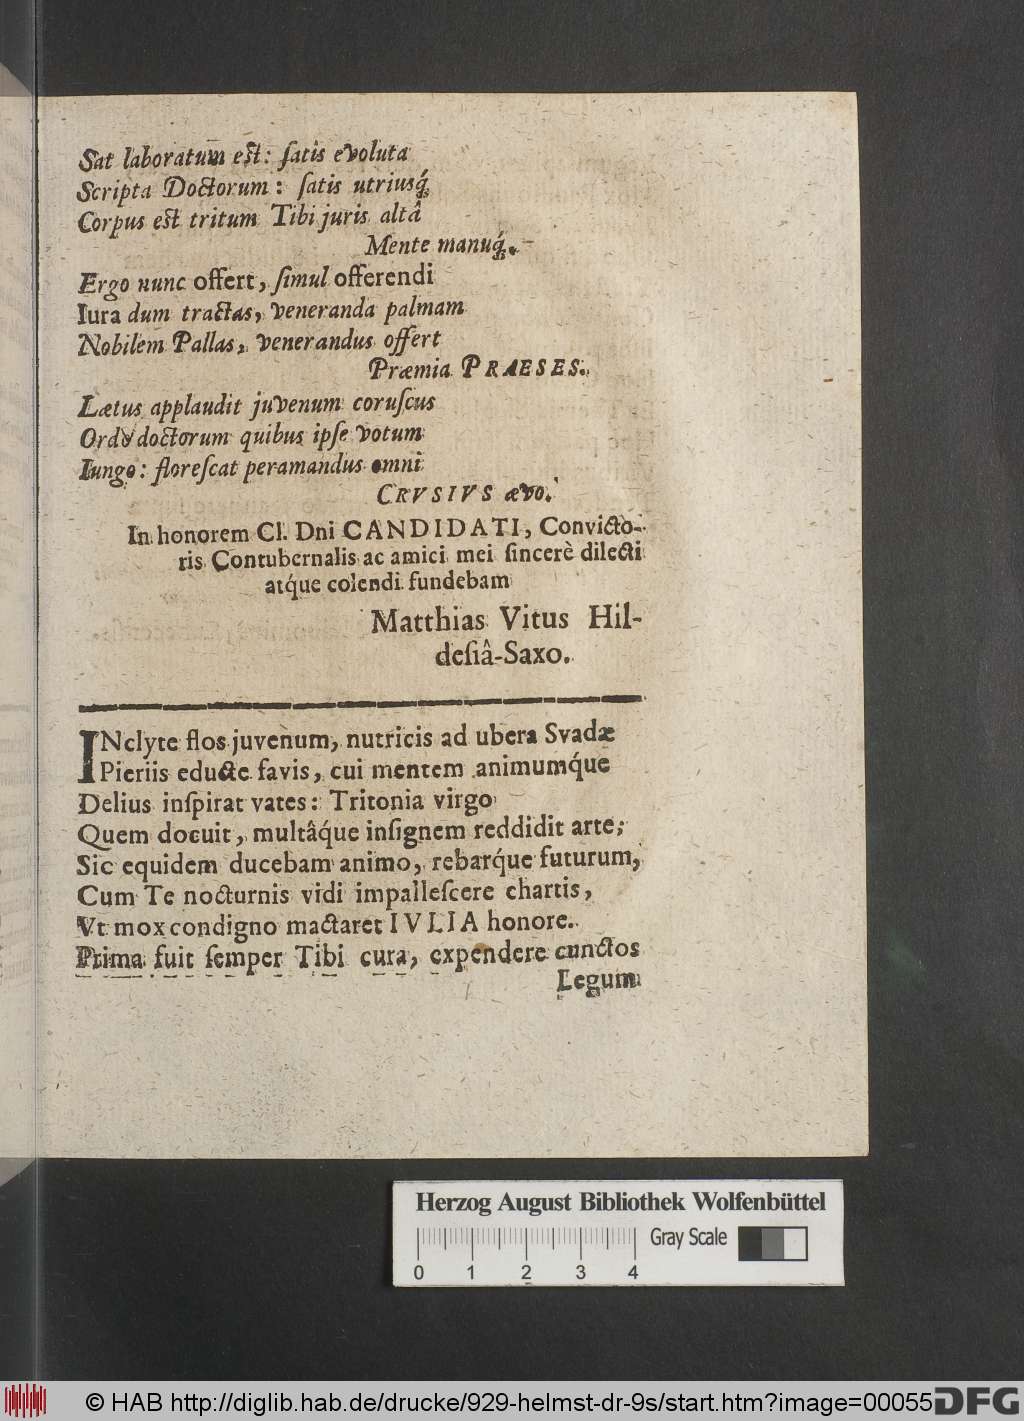 Sat laboratum est: ſatis evoluta
Scripta Doctorum: ſatis utriusq́;
Corpus est tritum Tibi juris altâ
Mente manuq́;.
Ergo nunc offert, ſimul offerendi
Iura dum tractas, veneranda palmam
Nobilem Pallas, venerandus offert
Præmia PRAESES.
Lætus applaudit juvenum coruſcus
Ordo doctorum quibus ipſe votum
Iungo: floreſcat peramandus omni
CRVSIVS ævo.
In honorem Cl. Dni CANDIDATI, Convicto-
ris Contubernalis ac amici mei ſincerè dilecti
atq́ue colendi fundebam
Matthias Vitus Hil-
deſiâ-Saxo.
INclyte flos juvenum, nutricis ad ubera Svadæ
Pieriis educte favis, cui mentem animumq́ue
Delius inſpirat vates: Tritonia virgo
Quem docuit, multâq́ue inſignem reddidit arte;
Sic equidem ducebam animo, rebarq́ue futurum,
Cum Te nocturnis vidi impalleſcere chartis,
Vt mox condigno mactaret IVLIA honore.
Prima fuit ſemper Tibi cura, expendere cunctos
Legum
Herzog August Bibliothek Wolfenbüttel
Gray Scale
0 1 2 3 4
© HAB http://diglib.hab.de/drucke/929-helmst-dr-9s/start.htm?image=00055
DFG